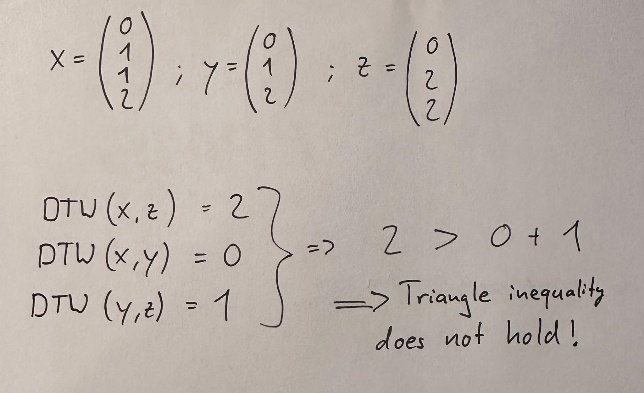 x = (0 1 1 2) ; y = (0 1 2) ; z = (0 2 2)
DTW (x, z) = 2
DTW (x, y) = 0
DTW (y, z) = 1
} => 2 > 0 + 1
=> Triangle inequality
does not hold!